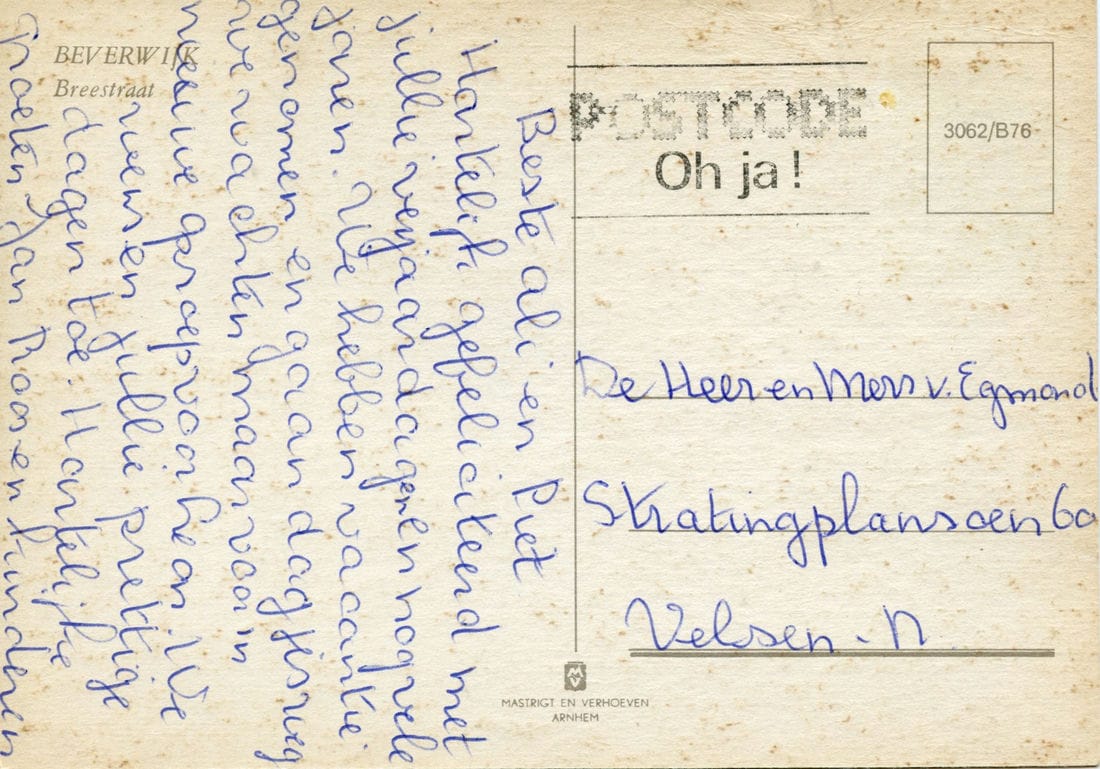 BEVERWIJK
Breestraat
Beste ali en Piet
Hartelijk gefeliciteerd met
jullie verjaardagen en nog vele
jaren. We hebben vacantie
genomen en gaan dagjesweg
we wachten maar voor 'n
nieuwe groep voor Leon. We
wensen jullie prettige
dagen toe. Hartelijke
groeten Jan Roos en kinderen
POSTCODE
Oh ja!
3062/B76
De Heer en Mevr v. Egmond
Stratingplansoen 60
Velsen - N
MASTRIGT EN VERHOEVEN
ARNHEM